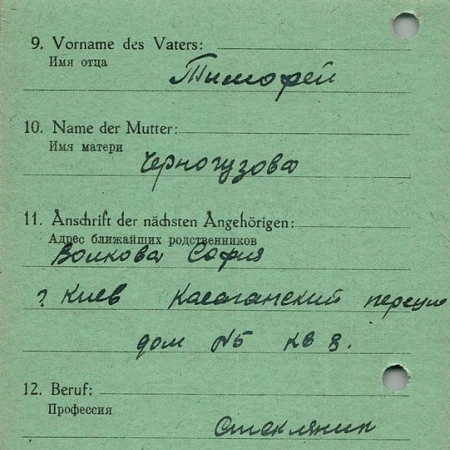 9. Vorname des Vaters:
Имя отца
Тимофей
10. Name der Mutter:
Имя матери
Черногузова
11. Anschrift der nächsten Angehörigen:
Адрес ближайших родственников
Волкова София
г Киев Касаганский переул
дом №5 кв 8.
12. Beruf:
Профессия
Стекляник